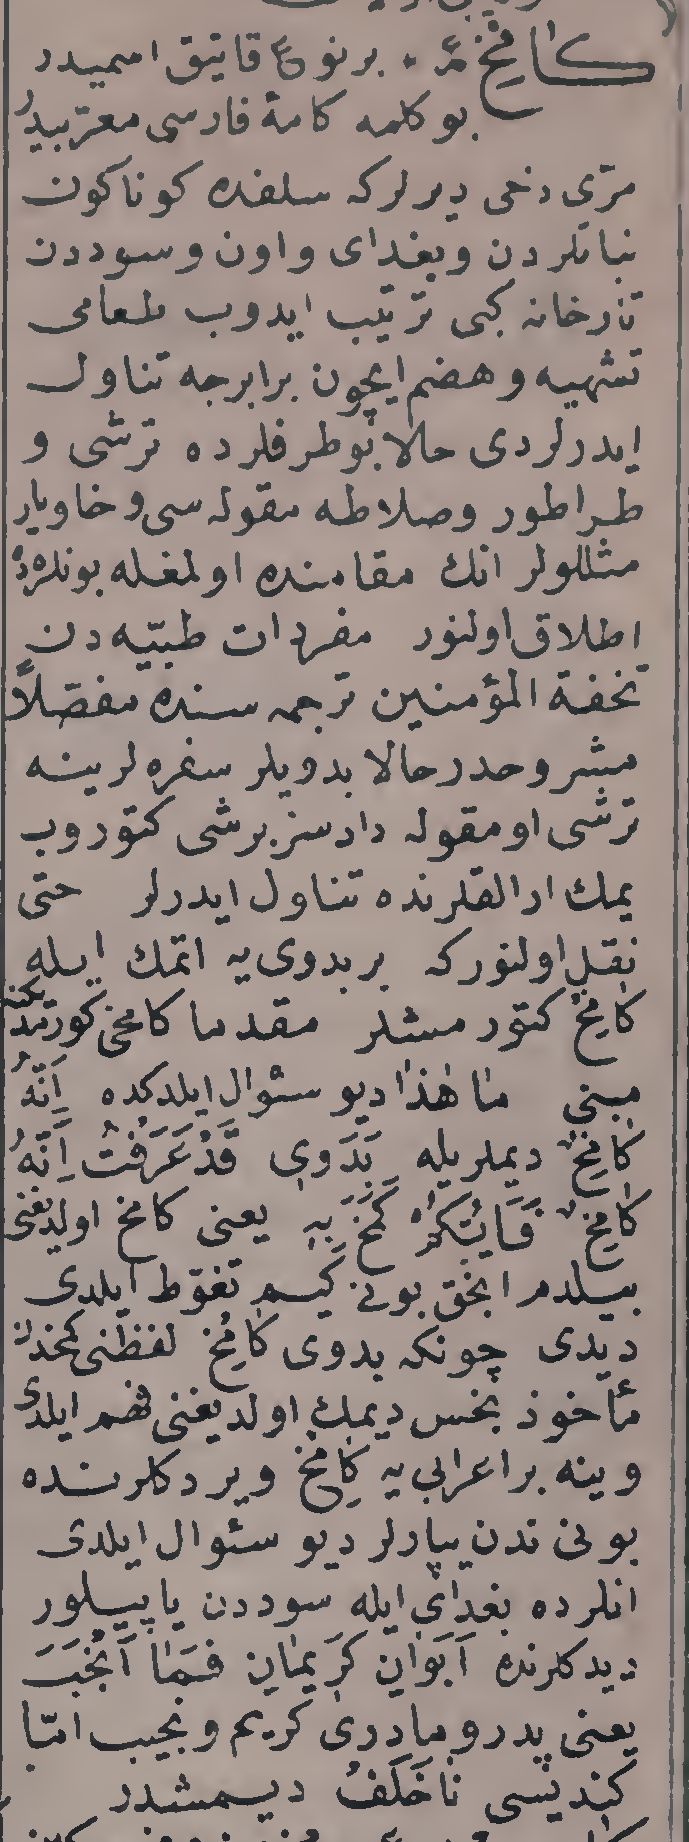 كامخ مر . بر نوع قاتيق اسميدر
بو كلمه كامهٔ فارسى معرّبيدر
مرّى دخى ديرلركه سلفده كوناكون
نباتلردن و بغداى و اون و سوددن
تارخانه كبى ترتيب ايدوب طعامى
تشهيه و هضم ايچون برابرجه تناول
ايدرلردى حالا بو طرفلرده ترشى و
طراطور و صلاطه مقوله سى و خاويار
مثللولر انك مقامنده اولمغله بونلرده
اطلاق اولنور مفردات طبيّه دن
تحفة المؤمنين ترجمه سنده مفصّلاً
مشروحدر حالا بدويلر سفره لرينه
ترشى او مقوله دادسز برشى كتوروب
يمك ارالقلرنده تناول ايدرلر حتى
نقل اولنوركه بر بدوى يه اتمك ايله
كامخ كتورمشلر مقدما كامخى كورمديكنه
مبنى ما هٰذا ديو سئوال ايلدكده اِنَّهُ
كَامِخٌ ديملريله بَدَوِى قَدْ عَرَفْتُ اَنَّهُ
كَامِخٌ فَاَيُّكُمْ كَمَخَ بِهِ يعنى كامخ اولديغنى
بيلدم انجق بونى كيم تغوّط ايلدى
ديدى چونكه بدوى كَامِخ لفظنى كمخدن
مأخوذ نجس ديمك اولديغنى فهم ايلدى
و ينه بر اعرابى يه كَامَخ ويردكلرنده
بونى ندن يپارلر ديو سئوال ايلدى
انلرده بغداى ايله سوددن ياپيلور
ديدكلرنده اَبَوَانِ كَرِيمَانِ فَمَا اَنْجَبَ
يعنى پدر و مادرى كريم و نجيب امّا
كنديسى ناخَلَف ديمشدر